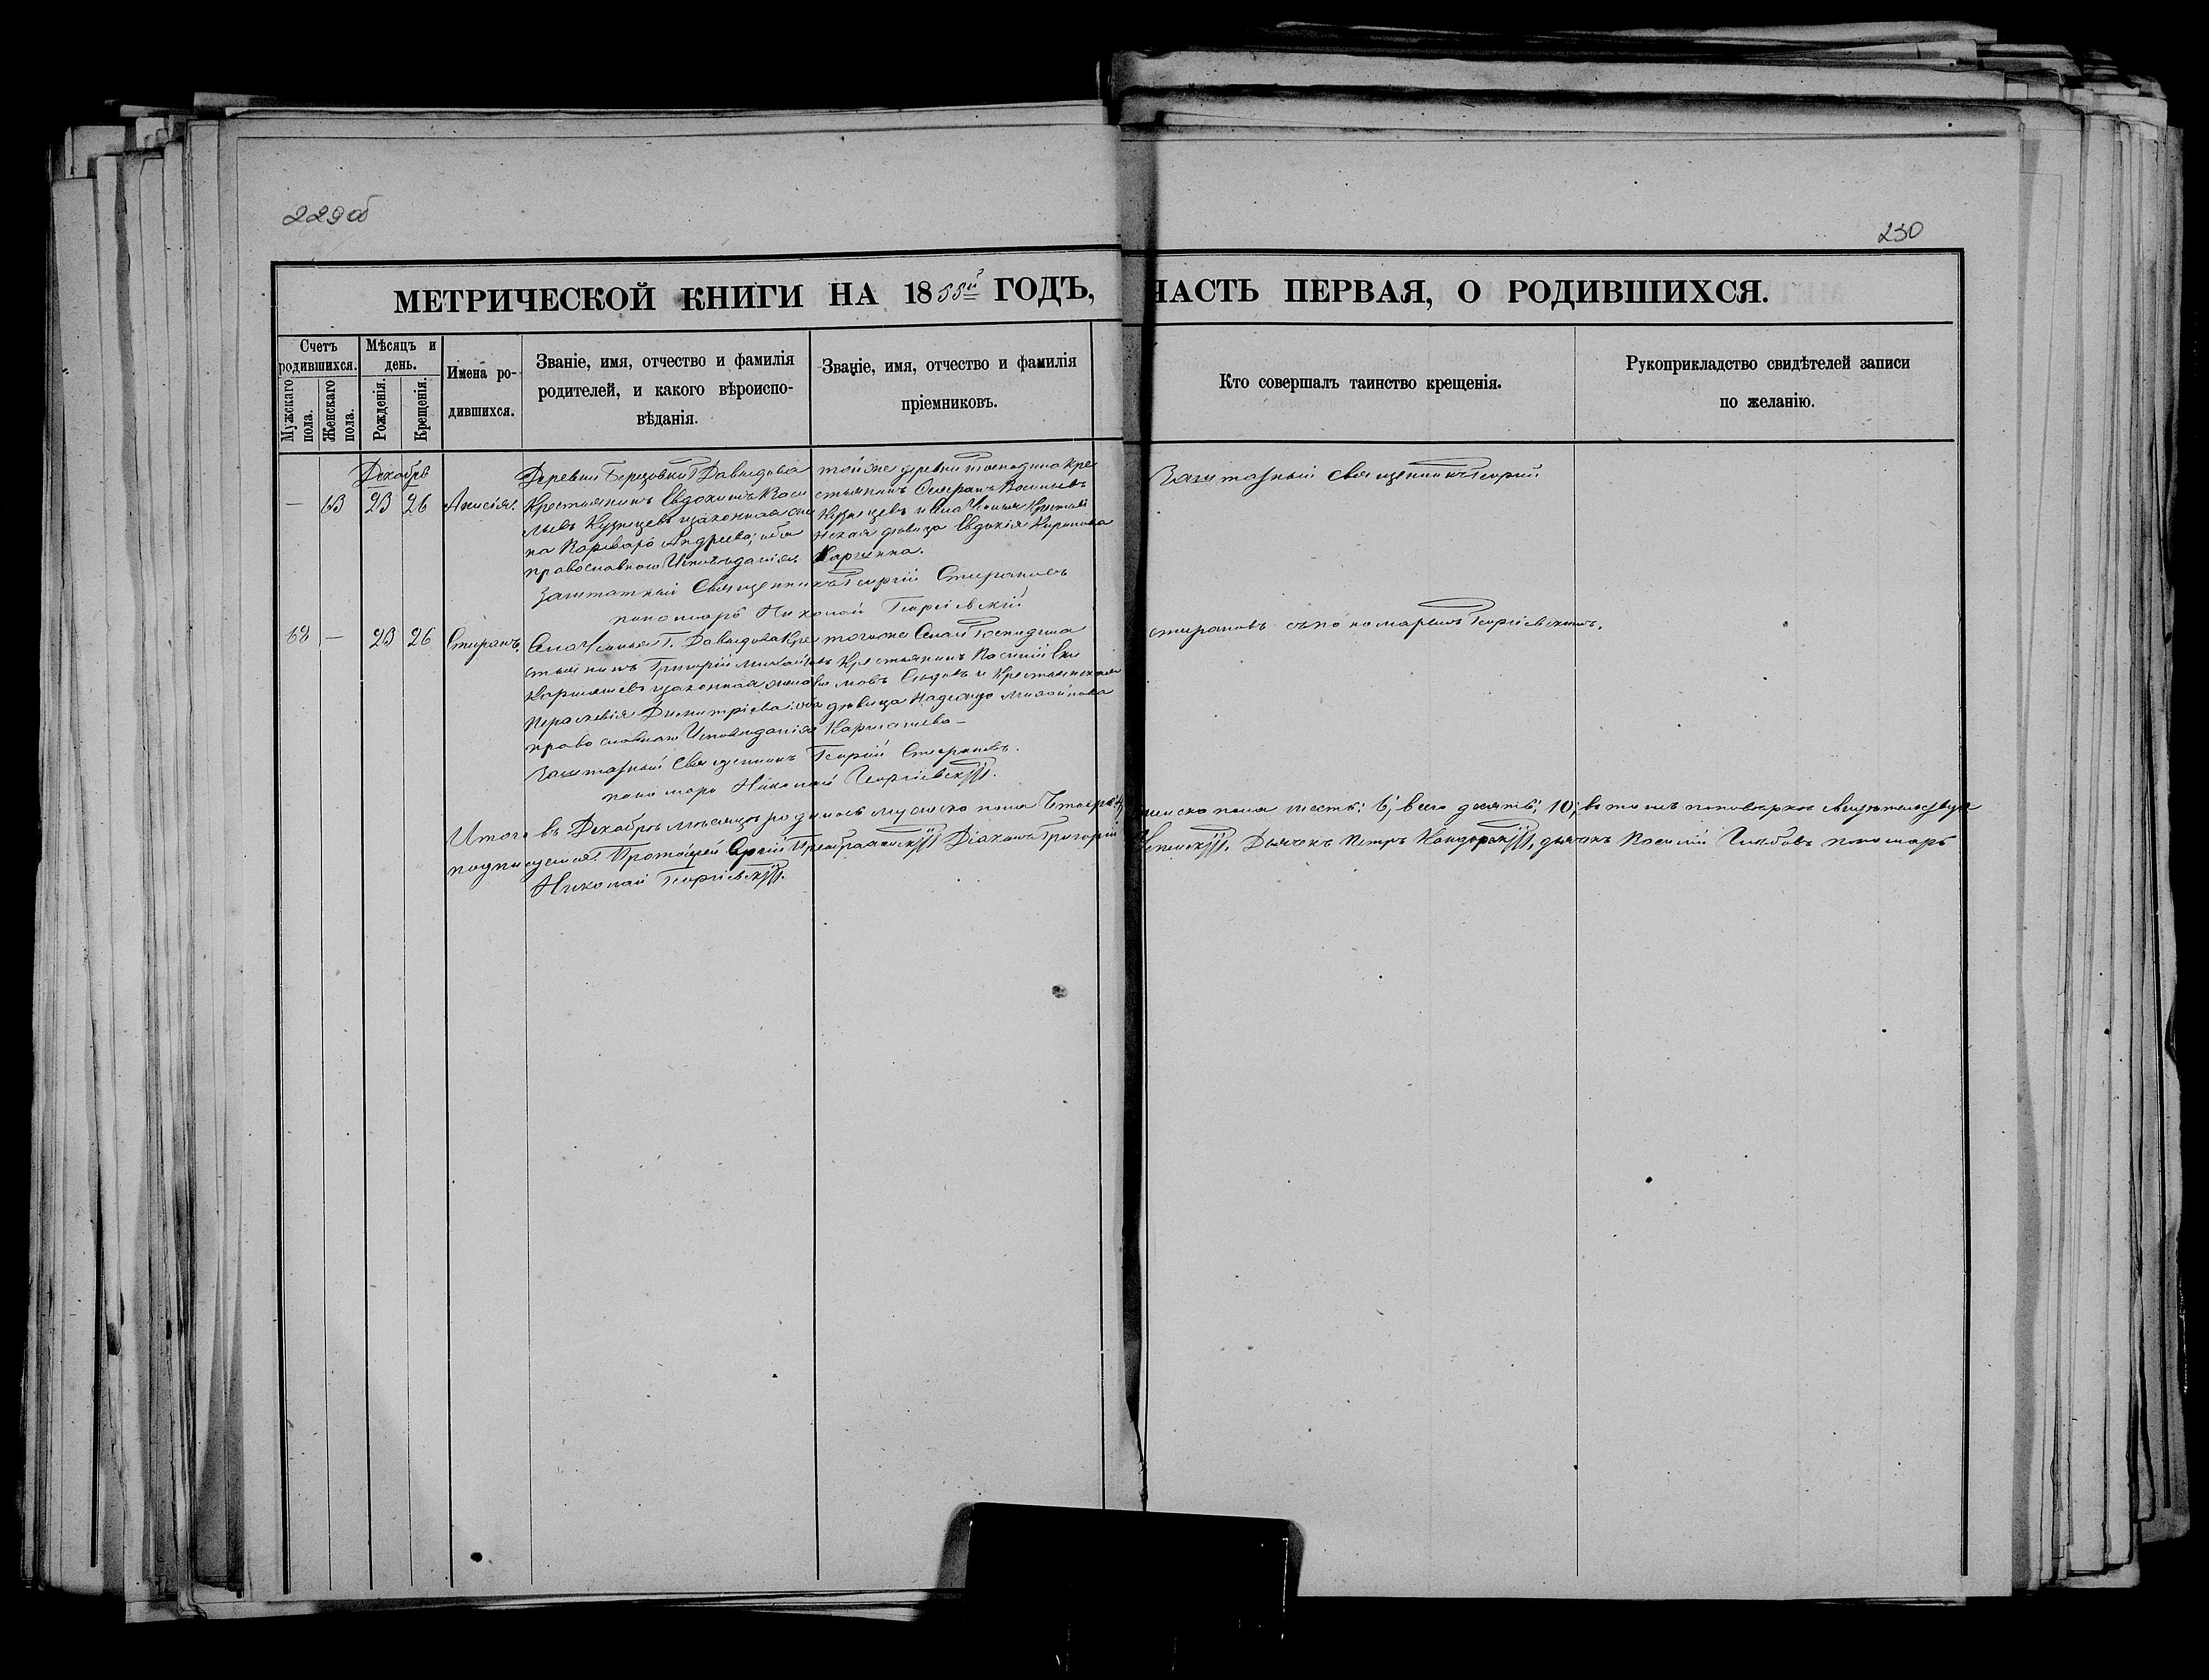 229об
230
МЕТРИЧЕСКОЙ КНИГИ НА 1855й ГОДЪ, ЧАСТЬ ПЕРВАЯ, О РОДИВШИХСЯ.
Счетъ родившихся.
Мужскаго пола.
Женскаго пола.
Мѣсяцъ и день.
Рожденія.
Крещенія.
Имена родившихся.
Званіе, имя, отчество и фамилія родителей, и какого вѣроисповѣданія.
Званіе, имя, отчество и фамилія пріемниковъ.
Кто совершалъ таинство крещенія.
Рукоприкладство свидѣтелей записи по желанію.
Декабрь
— 63 23 26 Анисія.
Деревни Березовки Г. Давыдова
Крестьянинъ Евдокимъ Васи
льевъ Кузнецовъ и законная же
на Варвара Андреева; оба
православнаго Исповѣданія
той же деревни Господина Кре
стьянинъ Стефанъ Васильевъ
Кузнецовъ и Села Крестьян
нская дѣвица Евдокія
Заштатный Священникъ Георгій
Заштатный Священникъ Георгій Стефановъ
пономарь Николай Георгіевскій
62 — 23 26 Стефанъ.
Села Г. Давыдова Кре
стьянинъ Григорій Михайловъ
Карташевъ и законная жена его
Параскевія Димитріева: оба
православнаго Исповѣданія
того же Села Господина
Крестьянинъ Василій
и Крестьянская
дѣвица Надежда Михайлова
Карташева —
Стефановъ съ пономаремъ Георгіевскимъ.
Заштатный Священникъ Георгій Стефановъ.
пономарь Николай Георгіевскій.
Итого въ Декабрѣ мѣсяцѣ родилось мужеска пола Четыре: 4, женска пола шесть: 6; всего десять; 10;
подписуемся: Протоіерей Сергій Преображенскій Діаконъ Григорій Дьячекъ Петръ дьячекъ Василій Глѣбовъ пономарь
Николай Георгіевскій.